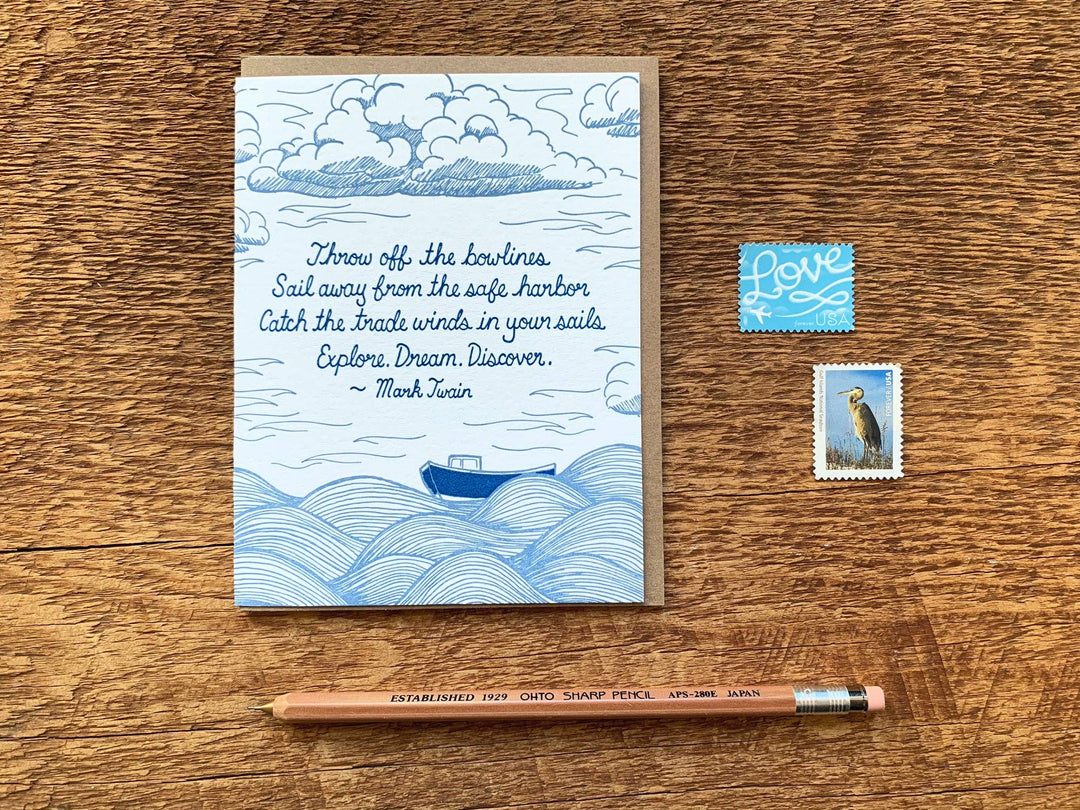 Throw off the bowlines
Sail away from the safe harbor
Catch the trade winds in your sails
Explore. Dream. Discover.
~ Mark Twain
Love
forever USA
FOREVER / USA
ESTABLISHED 1929 OHTO SHARP PENCIL APS-280E JAPAN